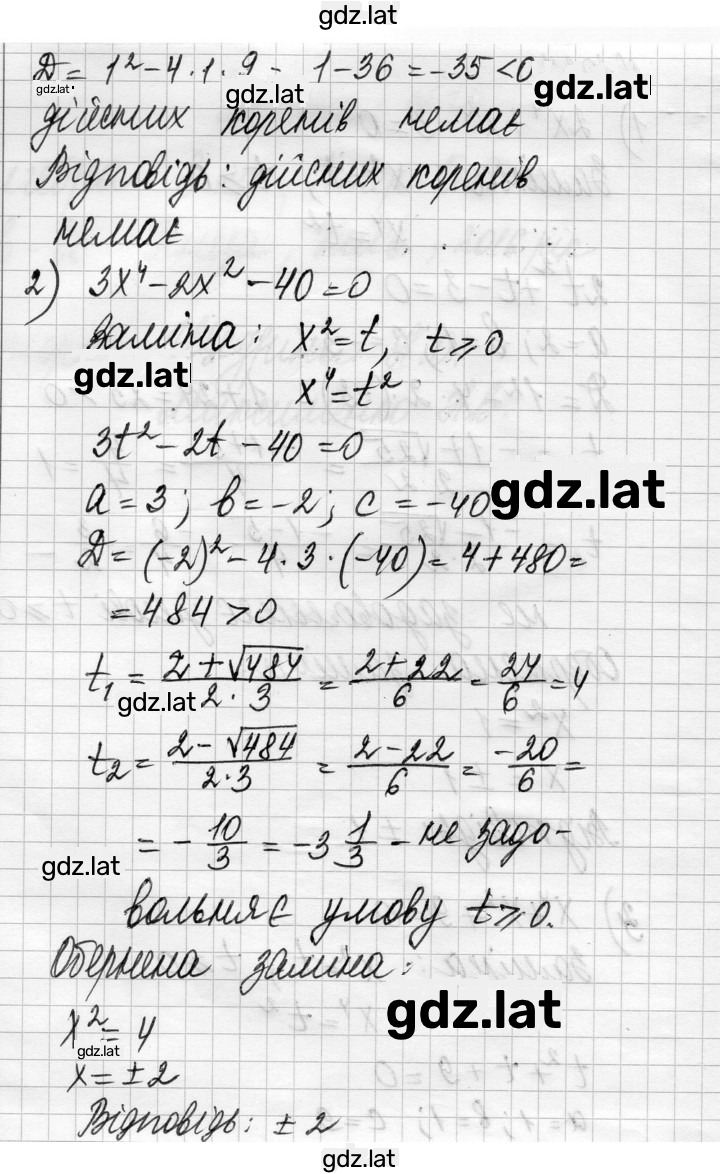 gdz.lat
D = 1² - 4·1·9 - 1 - 36 = -35 < 0
gdz.lat gdz.lat gdz.lat
дійсних коренів немає
Відповідь: дійсних коренів
немає
2) 3x⁴ - 2x² - 40 = 0
заміна: x² = t, t ⩾ 0
gdz.lat
x⁴ = t²
3t² - 2t - 40 = 0
a = 3; b = -2; c = -40
gdz.lat
D = (-2)² - 4·3·(-40) = 4 + 480 =
= 484 > 0
t₁ = (2 + √484)/(2·3) = (2 + 22)/6 = 24/6 = 4
gdz.lat
t₂ = (2 - √484)/(2·3) = (2 - 22)/6 = -20/6 =
= - 10/3 = -3 1/3 - не задо-
gdz.lat
вольняє умову t ⩾ 0.
Обернена заміна:
gdz.lat
x² = 4
gdz.lat
x = ± 2
Відповідь: ± 2
gdz.lat